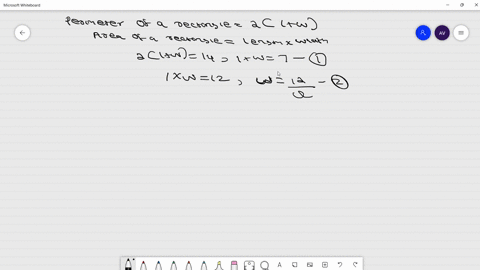 Microsoft Whiteboard
Perimeter of a rectangle = 2(l+w)
AV
Area of a rectangle = length x width
2(l+w) = 14, l+w = 7 - ①
l x w = 12, w = 12/l - ②